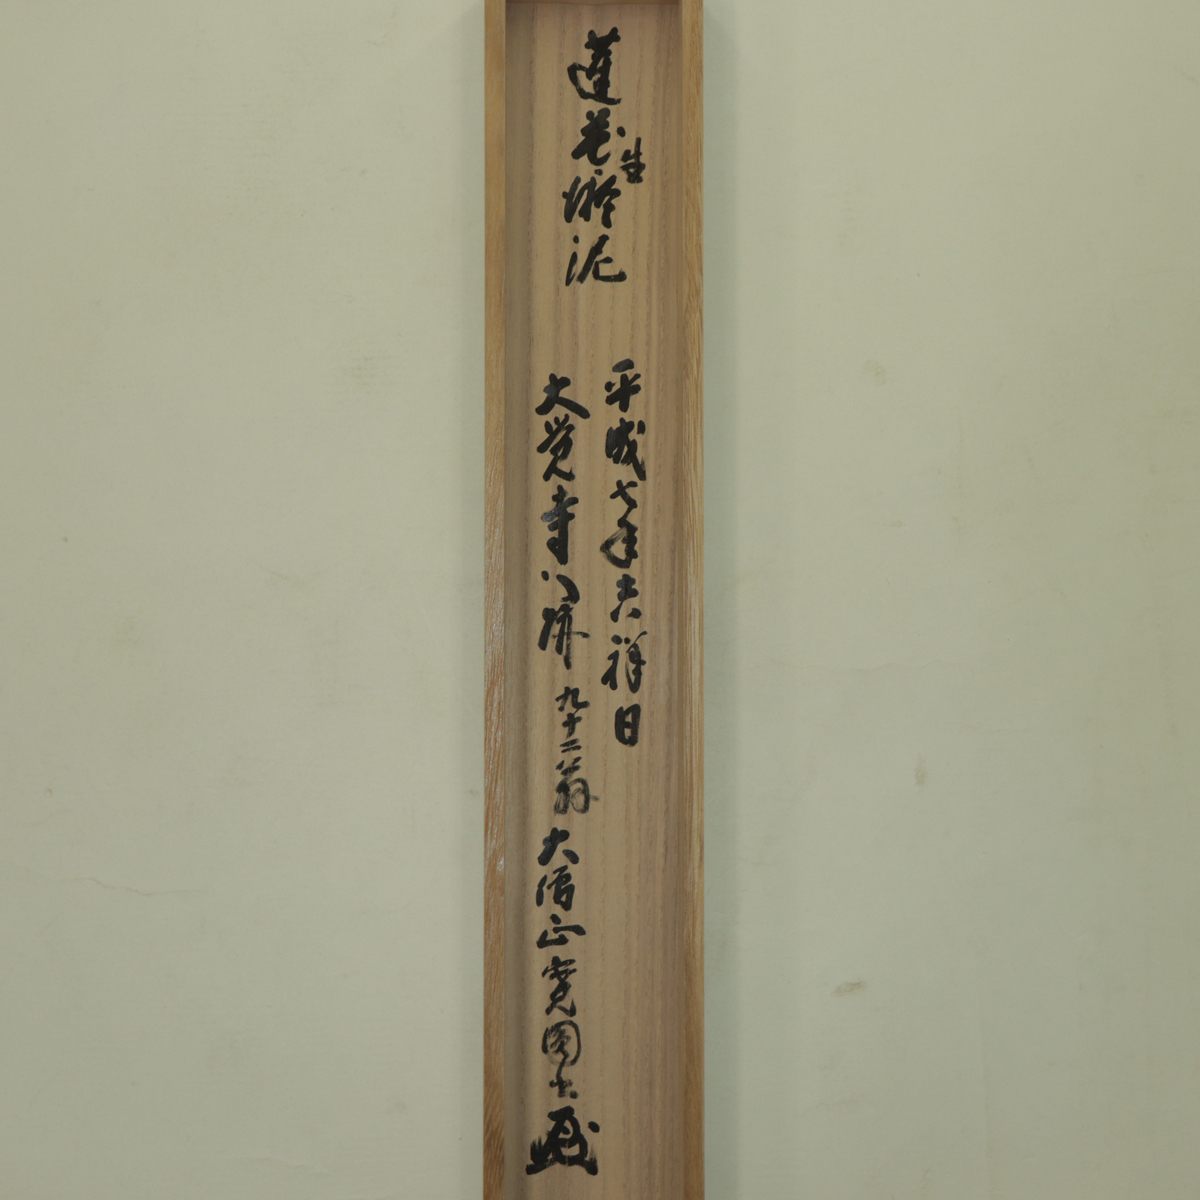 蓮花生淤泥
平成七年吉祥日
大覚寺門跡 九十二翁 大僧正 寛圓書